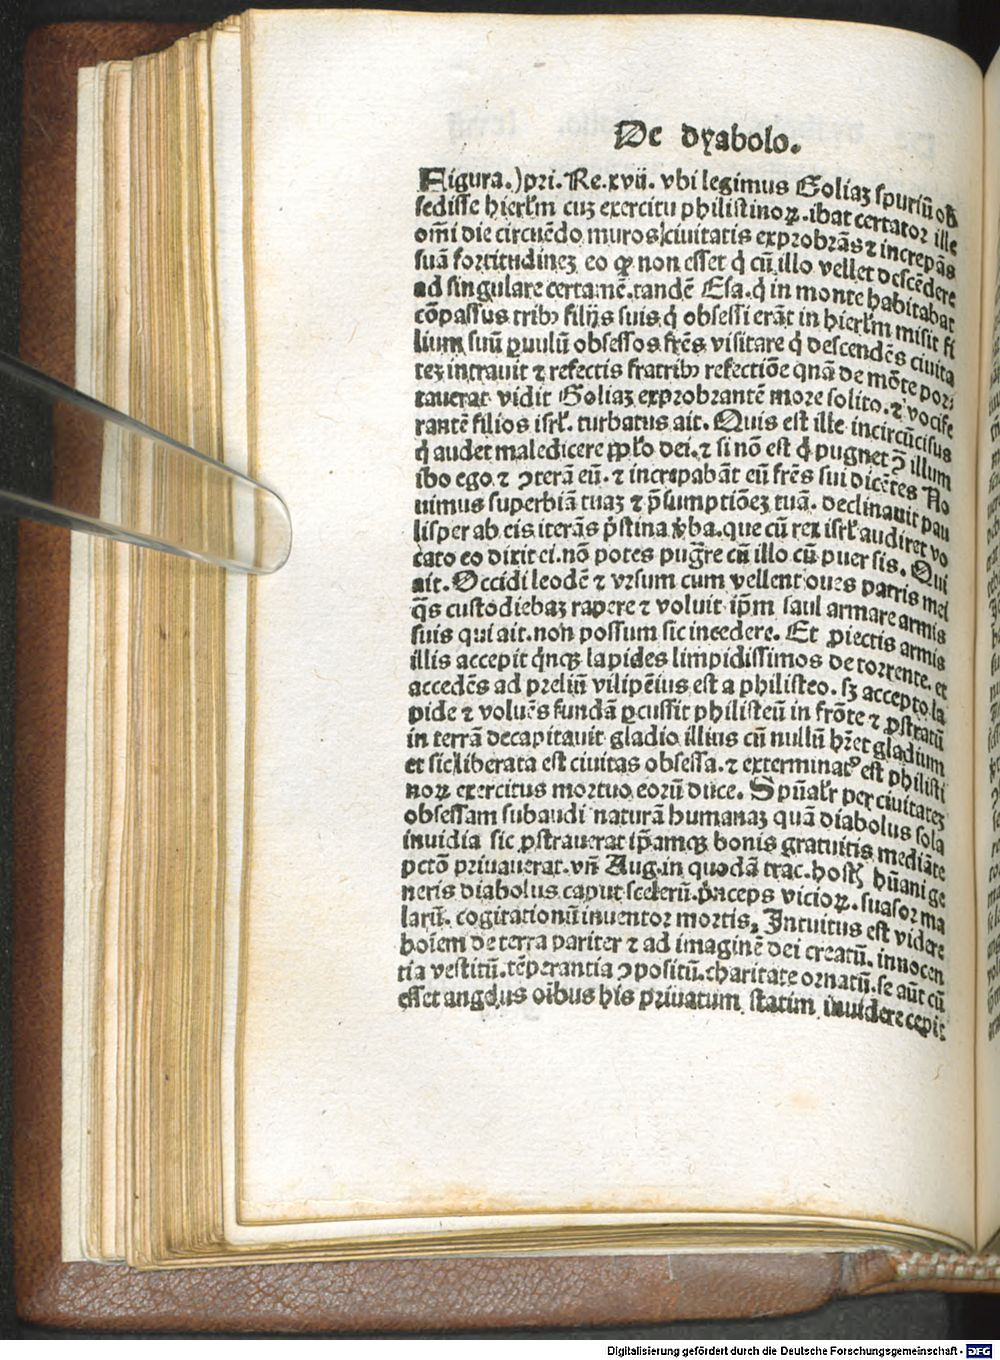 De dyabolo.
Figura.) pri. Re. xvii. vbi legimus Goliaz spuriū ob
sedisse hierl'm cuz exercitu philistinoꝝ. ibat certator ille
om̄i die circuēdo muros ciuitatis exprobrās ⁊ increpās
suā fortitudinez eo ꝙ non esset q̇ cū illo vellet descēdere
ad singulare certamē. tandē Esa. q̇ in monte habitabat
cōpassus tribꝰ filijs suis q̇ obsessi erāt in hierl'm misit fi
lium suū ꝑuulū obsessos frēs visitare q̇ descendēs ciuita
tez intrauit ⁊ refectis fratribꝰ refectiōe quā de mōte pori
tauerat vidit Goliaz exprobrantē more solito. ⁊ vocife
rantē filios isrl'. turbatus ait. Quis est ille incircūcisus
q̇ audet maledicere ppl'o dei. ⁊ si nō est q̇ pugnet ↄ̄ illum
ibo ego. ⁊ ↄterā eū. ⁊ increpabāt eū frēs sui dicētes No
uimus superbiā tuaz ⁊ p̄sumptiōez tuā. declinauit pau
lisper ab eis iterās p̄stina v̇ba. que cū rex isrl' audiret vo
cato eo dixit ei. nō potes pugr̄e cū illo cū puer sis. Qui
ait. Occidi leodē ⁊ vrsum cum vellent oues patris mei
q̄s custodiebaz rapere ⁊ voluit ip̄m saul armare armis
suis qui ait. non possum sic incedere. Et ꝓiectis armis
illis accepit q̇nqꝫ lapides limpidissimos de torrente. et
accedēs ad preliū vilipēius est a philisteo. sꝫ accepto la
pide ⁊ voluēs fundā ꝑcussit philisteū in frōte ⁊ ꝓstratū
in terrā decapitauit gladio illius cū nullū hr̄et gladium
et sic liberata est ciuitas obsessa. ⁊ exterminatꝰ est philisti
noꝝ exercitus mortuo eorū duce. Spūal'r per ciuitatez
obsessam subaudi naturā humanaz quā diabolus sola
inuidia sic ꝓstrauerat ip̄amqꝫ bonis gratuitis mediāte
pctō priuauerat. vn̄ Aug. in quodā trac. hostꝭ hūani ge
neris diabolus caput scelerū. ṗnceps vicioꝝ. suasor ma
larū. cogitationū inuentor mortis, Intuitus est videre
hoīem de terra pariter ⁊ ad imaginē dei creatū. innocen
tia vestitū. tēperantia ↄpositū. charitate ornatū. se aūt cū
esset angelus oībus his priuatum statim inuidere cepit
Digitalisierung gefördert durch die Deutsche Forschungsgemeinschaft - DFG